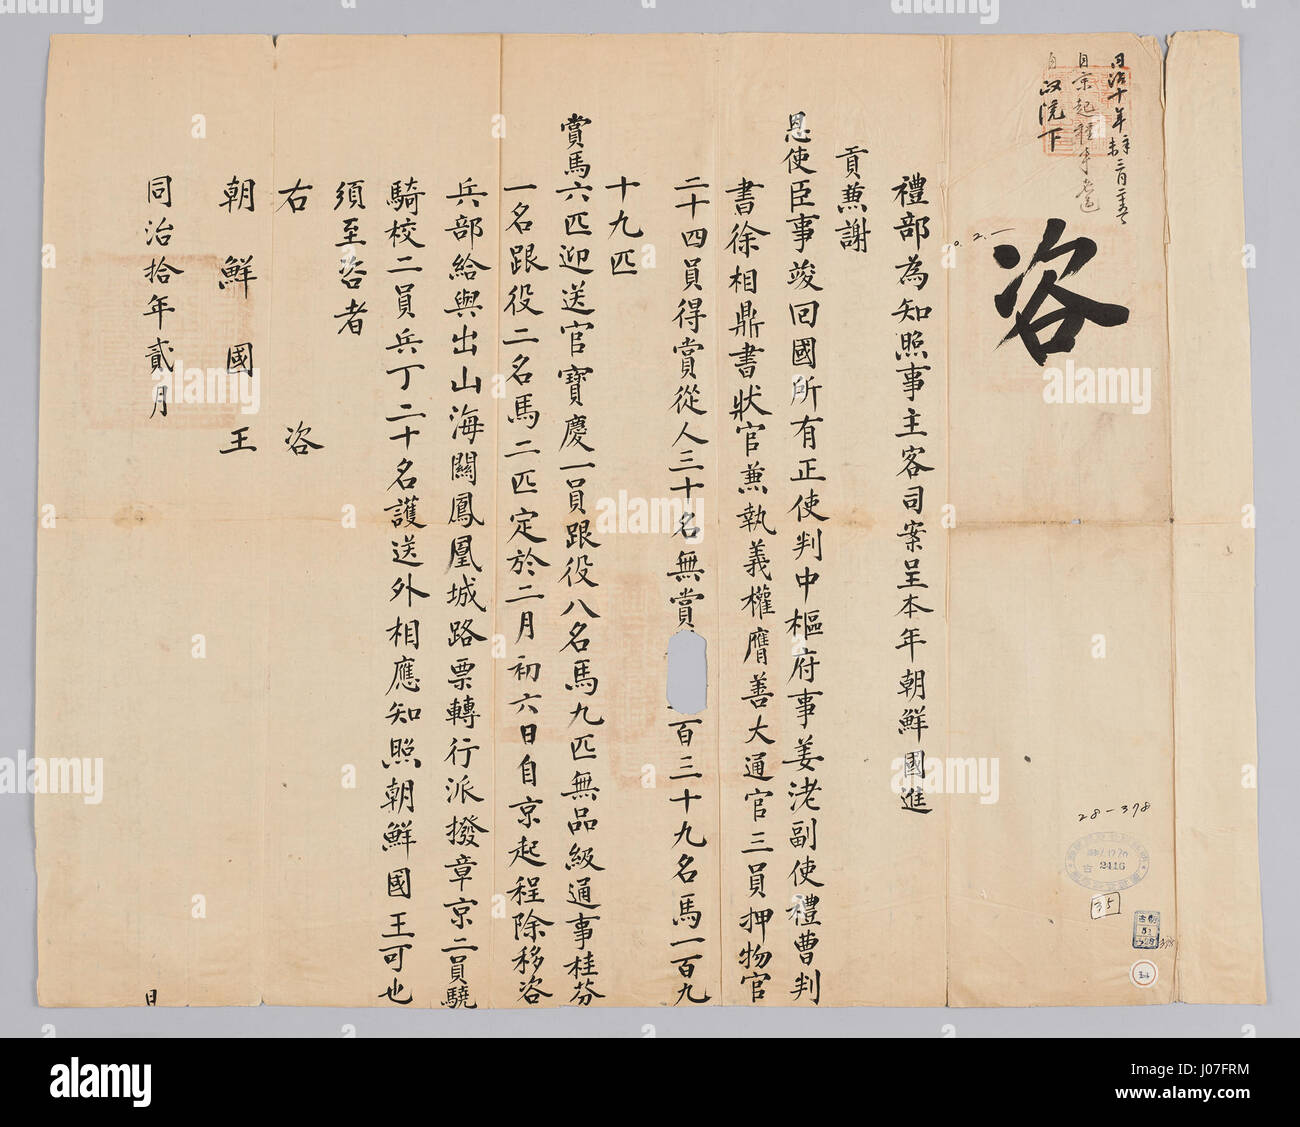 同治十年辛未二月二十
自京起程事
自政院下
咨
禮部為知照事主客司案呈本年朝鮮國進
貢兼謝
恩使臣事竣回國所有正使判中樞府事姜㳣副使禮曹判
書徐相鼎書狀官兼執義權膺善大通官三員押物官
二十四員得賞從人三十名無賞 百三十九名馬一百九
十九匹
賞馬六匹迎送官寶慶一員跟役八名馬九匹無品級通事桂芬
一名跟役二名馬二匹定於二月初六日自京起程除移咨
兵部給與出山海關鳳凰城路票轉行派撥章京二員驍
騎校二員兵丁二十名護送外相應知照朝鮮國王可也
須至咨者
右 咨
朝鮮國王
同治拾年貳月 日
28-378
2416
35
a
alamy
Image ID: J07FRM
www.alamy.com